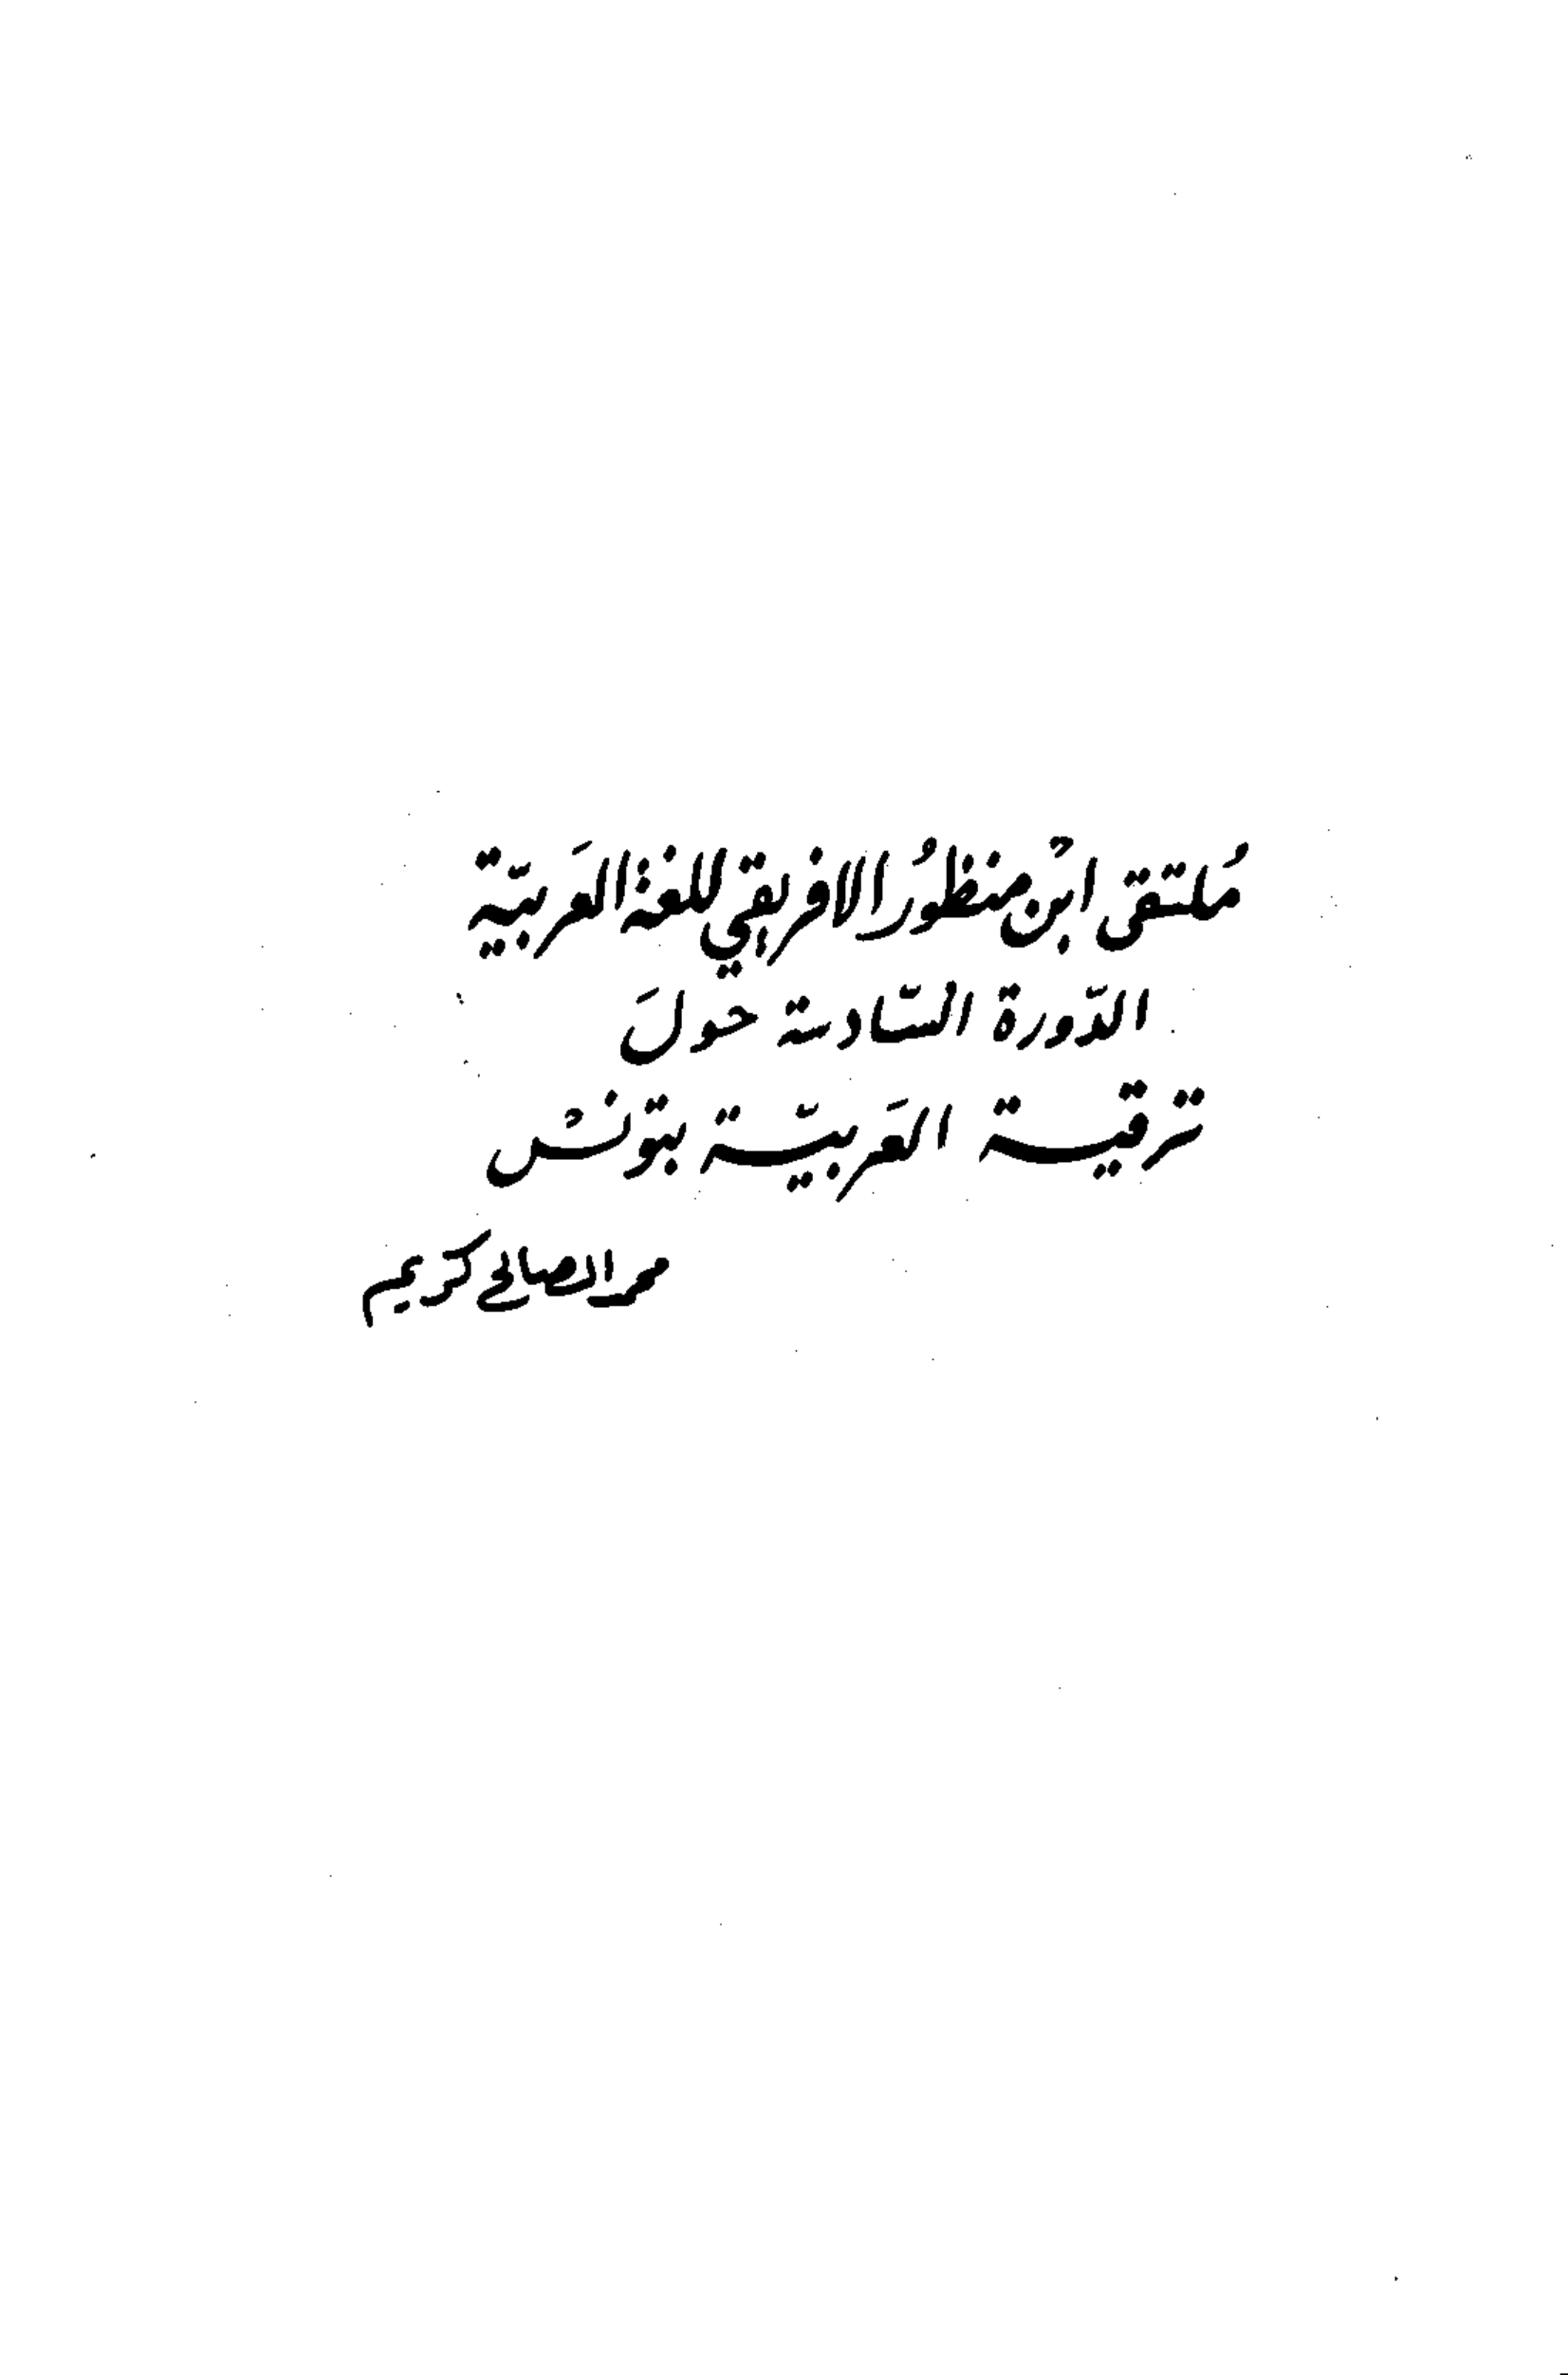 مُلتقى ابنُ منظوُر الافريقي للغة العَربيّة
الدّورة السّادسة حَولَ
ترقيـة العَربيّـة بتونسُ
محمد الصالح كريم